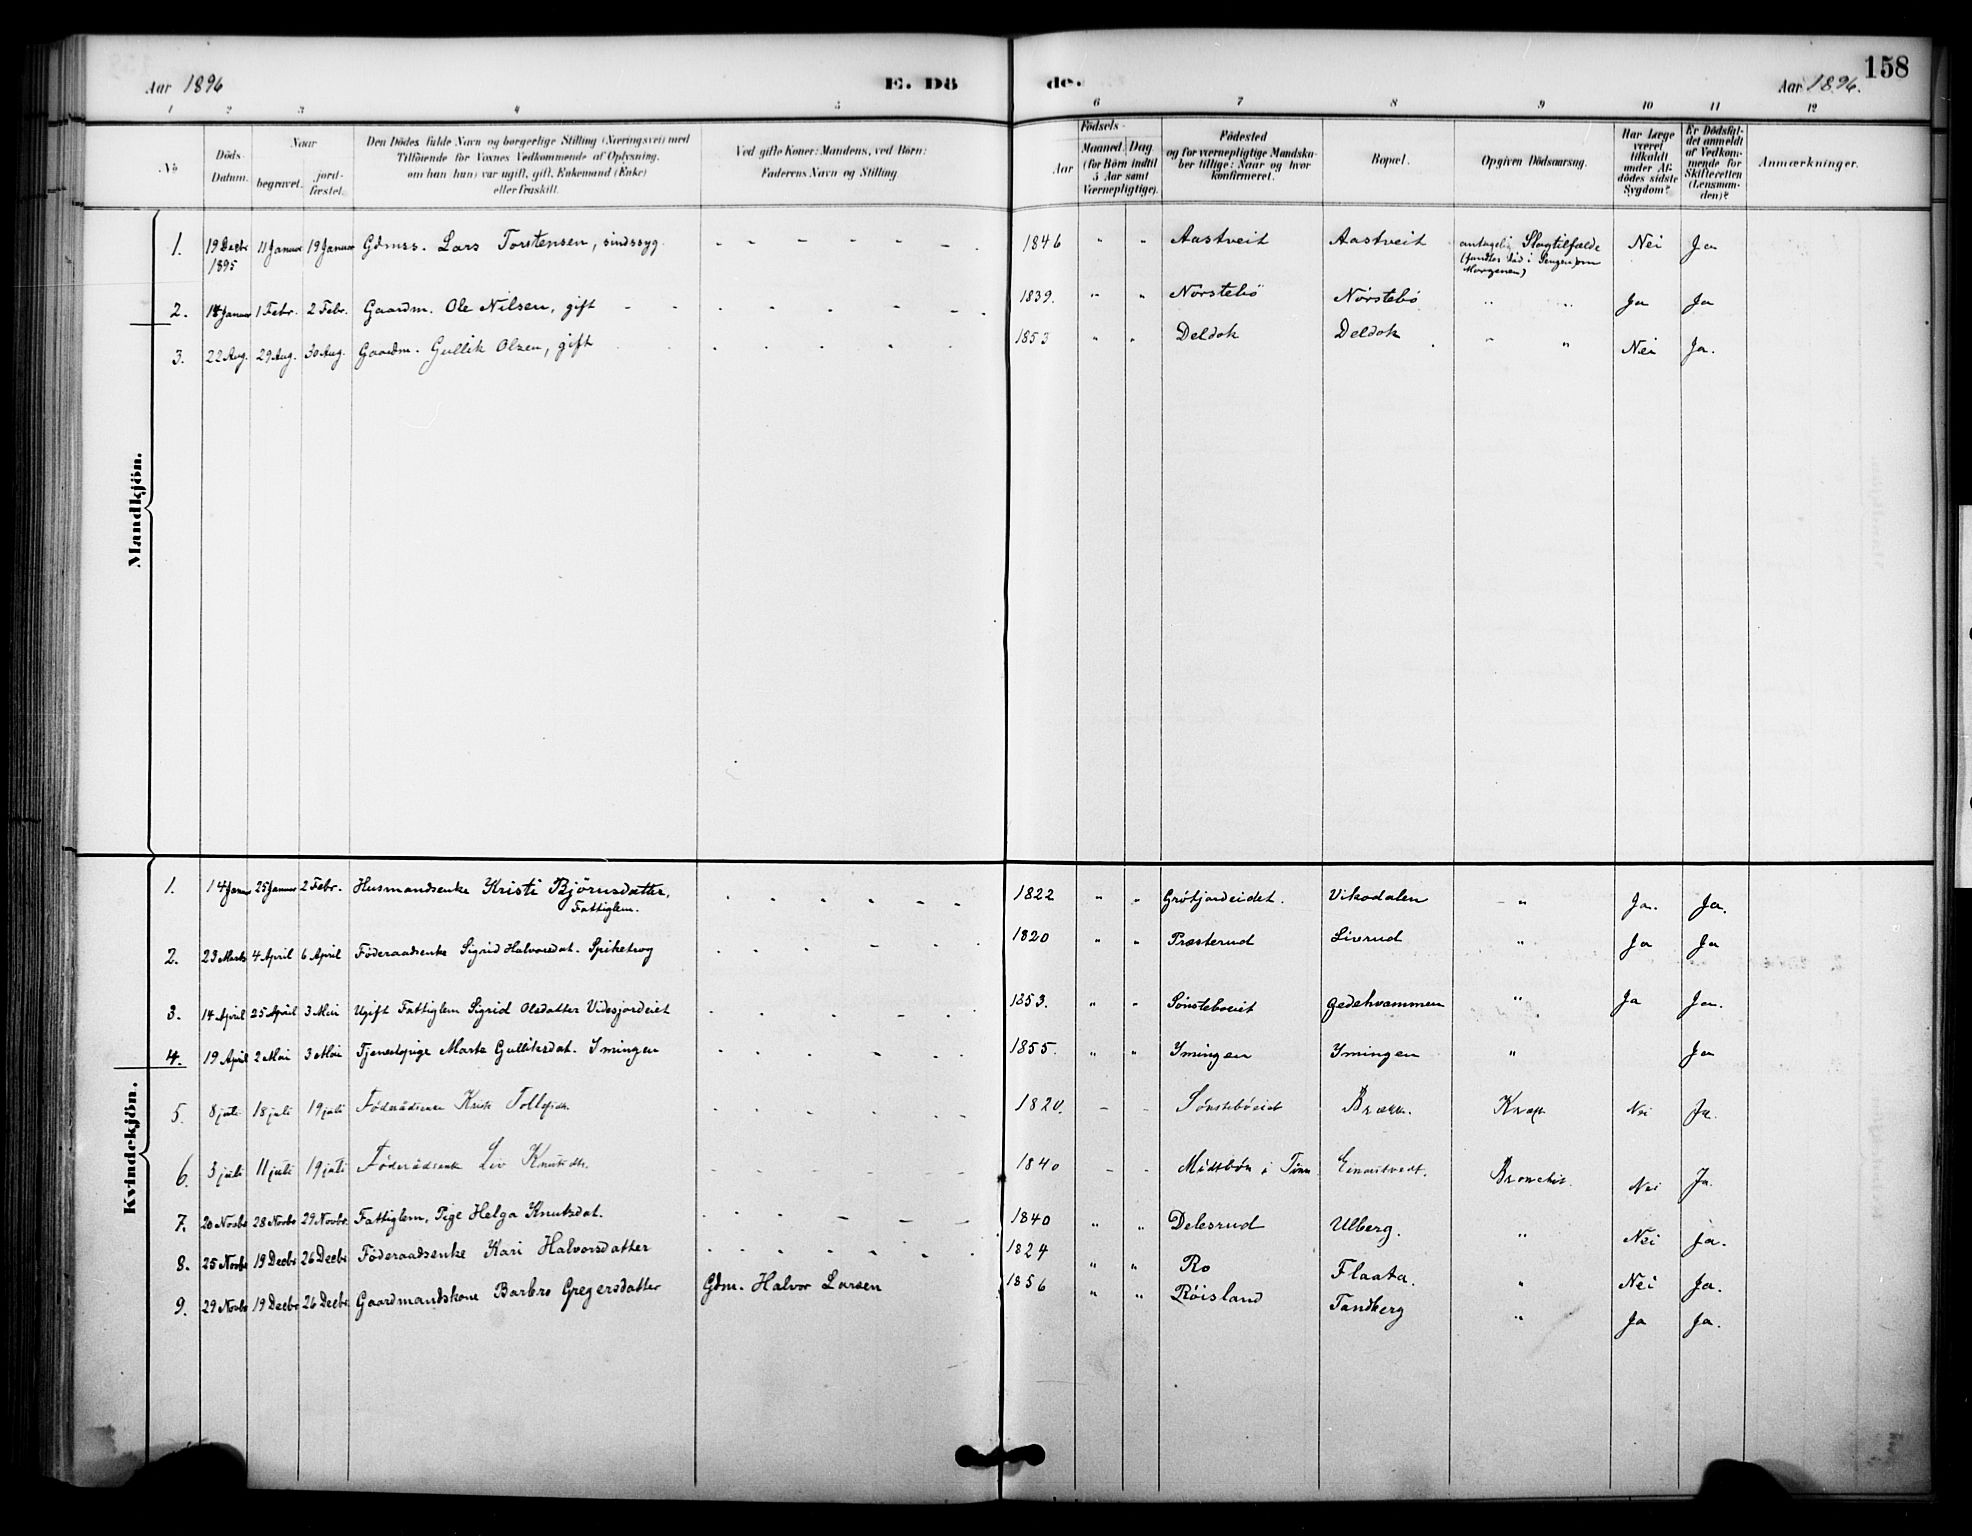 158
Aar 1896 E. Dö de. Aar 1896.
1 2 3 4 5 6 7 8 9 10 11 12
No.
Döds-Datum.
Naar begravet. jordfæstet.
Den Dödes fulde Navn og borgerlige Stilling (Næringsvei) med
Tilföiende for Voxnes Vedkommende af Oplysning,
om han (hun) var ugift, gift, Enkemand (Enke)
eller fraskilt.
Ved gifte Koner: Mandens, ved Börn:
Faderens Navn og Stilling.
Födsels-
Aar Maaned. Dag
(for Börn indtil
5 Aar samt
Værnepligtige).
Födested
og for værnepligtige Mandska-
ber tillige: Naar og hvor
konfirmeret.
Bopæl.
Opgiven Dödsaarsag.
Har Læge
været
tilkaldt
under Af-
dödes sidste
Sygdom?
Er Dödsfal-
det anmeldt
af Vedkom-
mende for
Skifteretten
(Lensman-
den)?
Anmærkninger.
Mandkjön.
1. 19 Decbr 1895 11 Januar 19 Januar Gdmss. Lars Torstensen, sindssyg 1846 " " Aastveit Aastveit antagelig Slagtilfælde (fandtes död i Sengen om Morgenen) Nei Ja
2. 14 Januar 1 Febr. 2 Febr. Gaardm. Ole Nilsen, gift 1839. " " Nörstebö Nörstebö " " Ja Ja
3. 22 Aug. 29 Aug. 30 Aug. Gaardm. Gullik Olsen, gift 1853 " " Deldok Deldok " " Nei Ja.
Kvindekjön.
1. 14 Januar 25 Januar 2 Febr. Husmandsenke Kristi Björnsdatter, Fattiglem. 1822 " " Grötjordeidet. Vikadalen " Ja. Ja.
2. 23 Marts 4 April 6 April Föderaadsenke Sigrid Halvorsdat. Spiketrog 1820 " " Præsterud Liverud " Ja Ja
3. 14 April 25 April 3 Mai Ugift Fattiglem Sigrid Olsdatter Vidsjordeiet 1853. " " Sönsteböeiet Gedehvammen " Ja Ja.
4. 19 April 2 Mai 3 Mai Tjenestepige Marte Gulliksdat. Imingen 1855. " " Imingen Imingen " Ja
5. 8 juli 18 juli 19 juli Föderådsenke Kristi Tollefsdtr. 1820. - - Sönsteböeiet Nei Ja.
6. 3 juli 11 juli 19 juli Föderådsenke Liv Knutsdtr. 1840 - - Midtbøn i Tinn Bronchit. Nei Ja.
7. 20 Novbr 28 Novbr 29 Novbr. Fattiglem, Pige Helga Knutsdat. 1840 " " Delesrud Ulberg. " Nei Ja.
8. 25 Novbr 19 Decbr 26 Decbr Föderaadsenke Kari Halvorsdatter 1824 " " Ro Flaata. " Nei Ja.
9. 29 Novbr 19 Decbr 26 Decbr. Gaardmandskone Barbro Gregersdatter Gdm. Halvor Larsen 1856 " " Röisland Tandberg " Ja Ja.